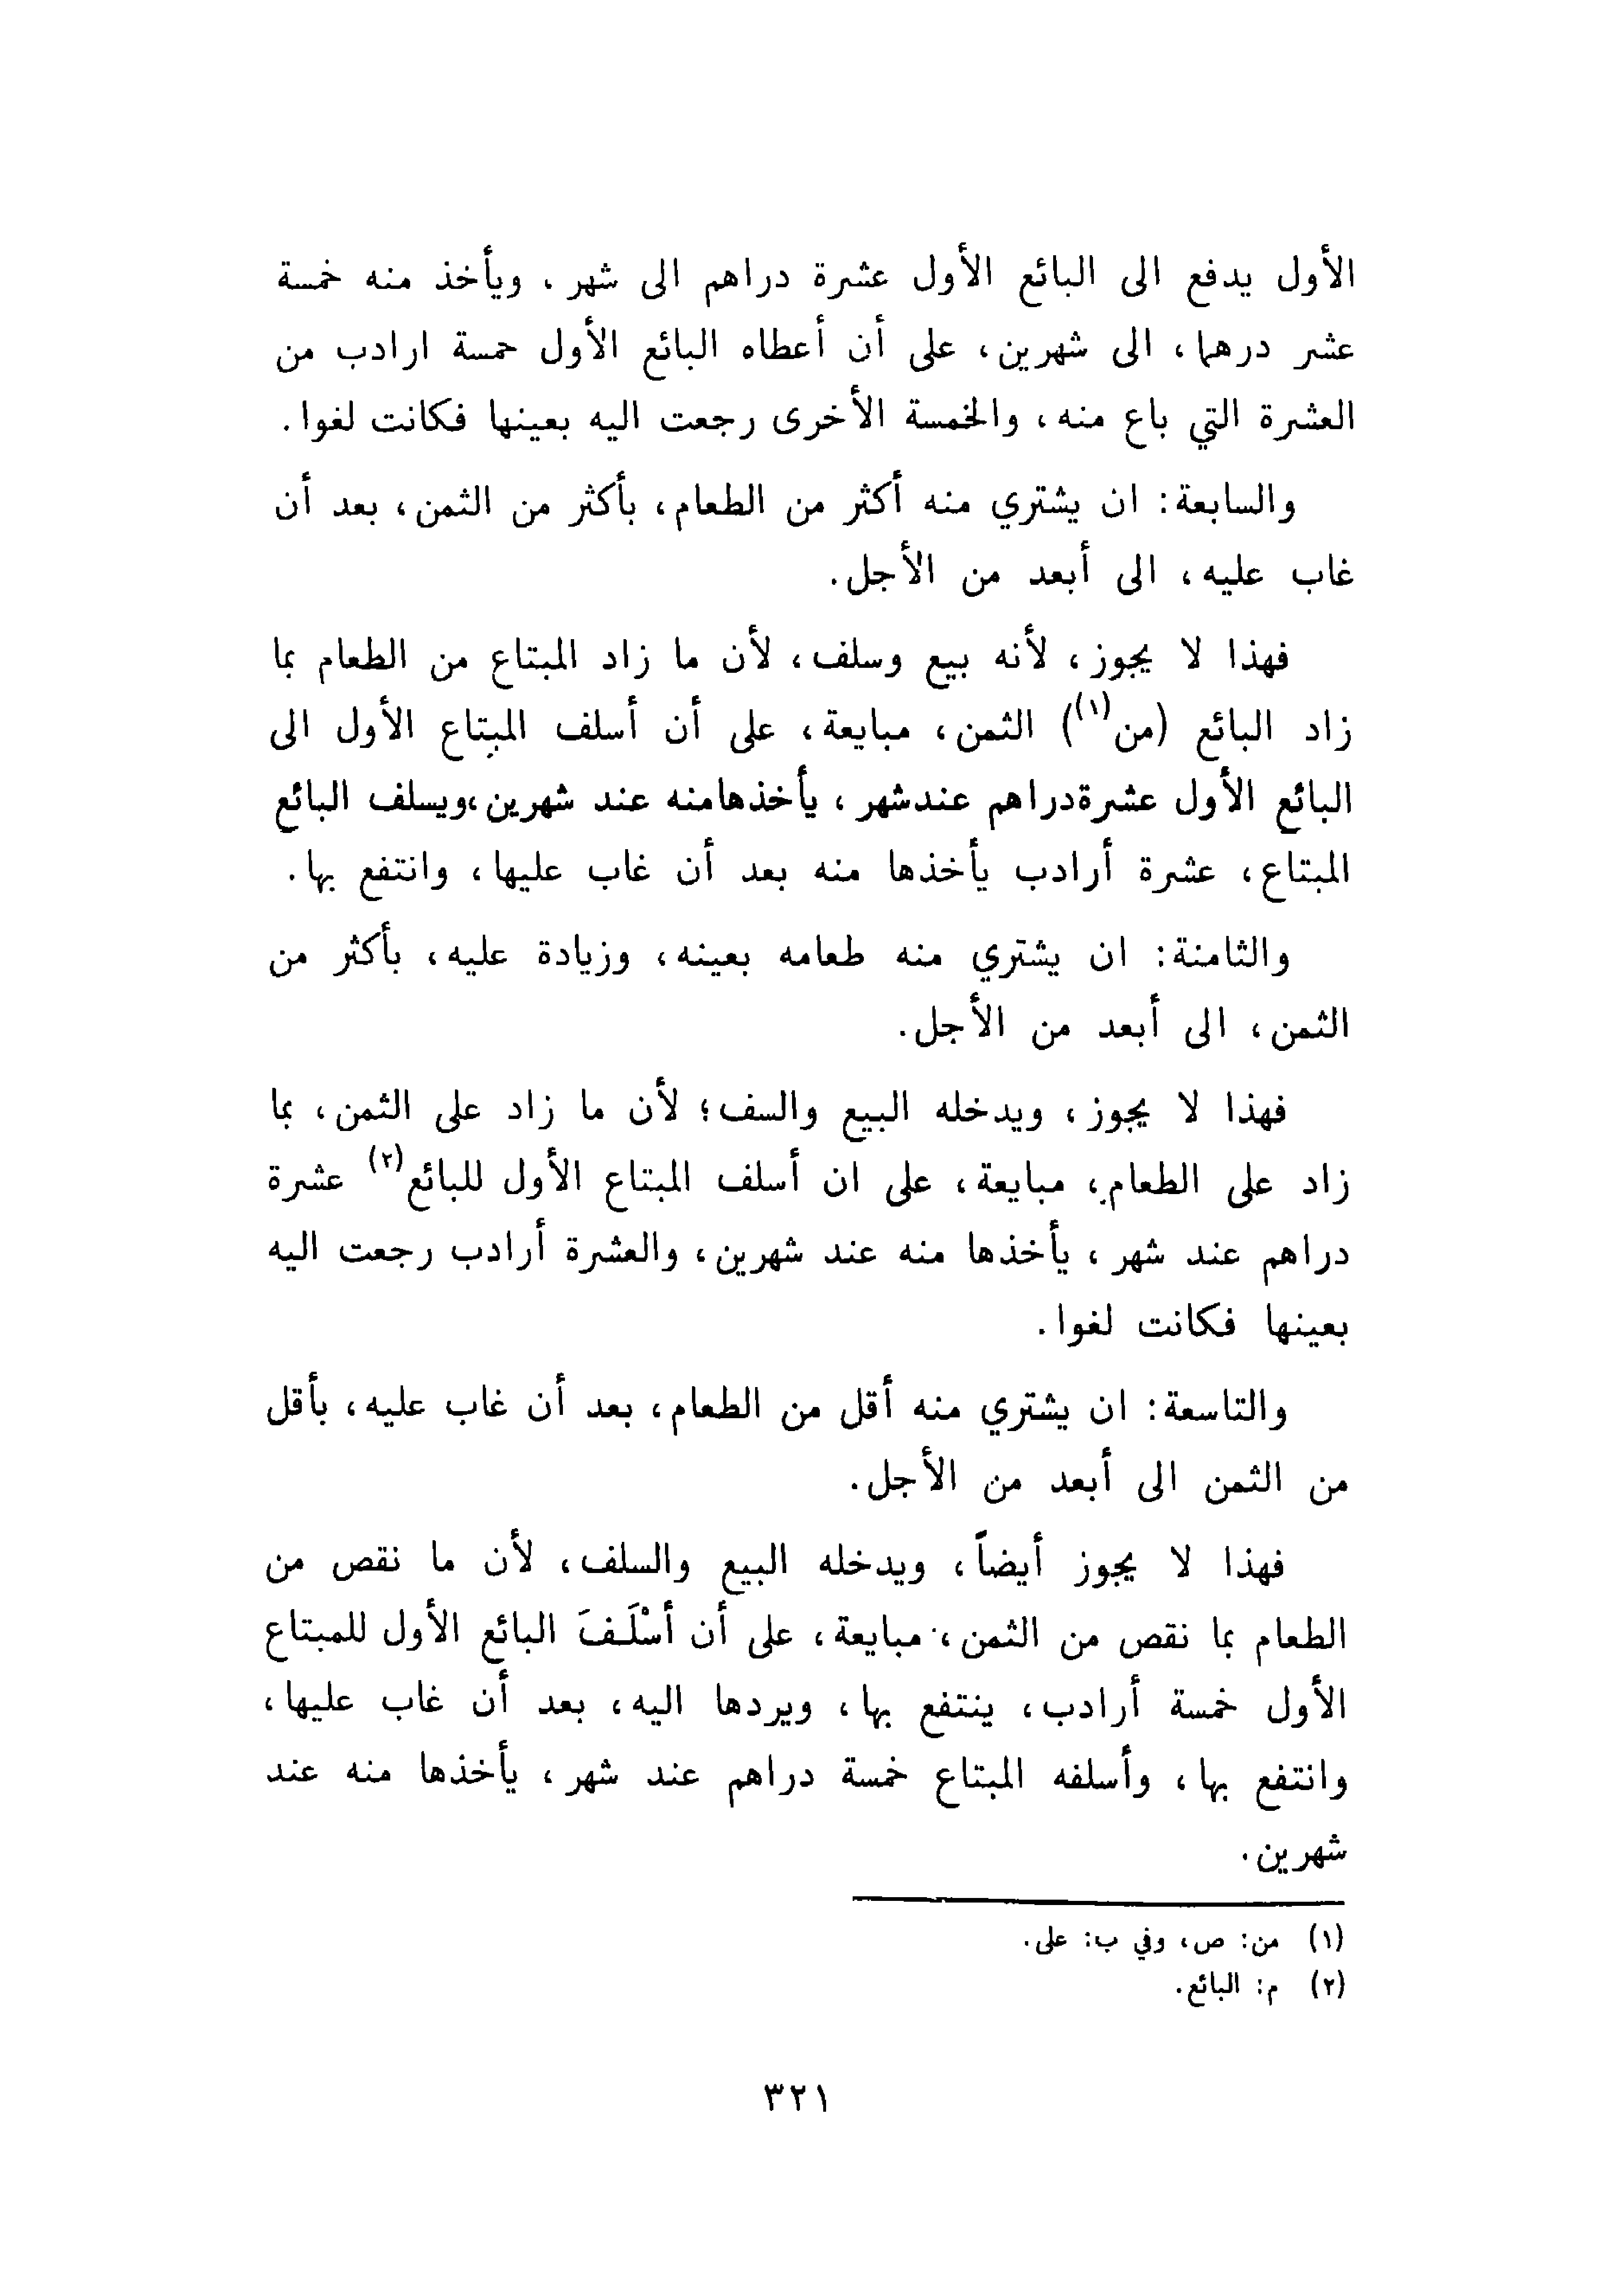 الأول يدفع الى البائع الأول عشرة دراهم الى شهر، ويأخذ منه خمسة
عشر درهما، الى شهرين، على أن أعطاه البائع الأول حمسة ارادب من
العشرة التي باع منه، والخمسة الأخرى رجعت اليه بعينها فكانت لغوا.
والسابعة: ان يشتري منه أكثر من الطعام، بأكثر من الثمن، بعد أن
غاب عليه، الى أبعد من الأجل.
فهذا لا يجوز، لأنه بيع وسلف، لأن ما زاد المبتاع من الطعام بما
زاد البائع (من(١)) الثمن، مبايعة، على أن أسلف المبتاع الأول الى
البائع الأول عشرةدراهم عندشهر، يأخذهامنه عند شهرين،ويسلف البائع
المبتاع، عشرة أرادب يأخذها منه بعد أن غاب عليها، وانتفع بها.
والثامنة: ان يشتري منه طعامه بعينه، وزيادة عليه، بأكثر من
الثمن، الى أبعد من الأجل.
فهذا لا يجوز، ويدخله البيع والسف؛ لأن ما زاد على الثمن، بما
زاد على الطعام، مبايعة، على ان أسلف المبتاع الأول للبائع(٢) عشرة
دراهم عند شهر، يأخذها منه عند شهرين، والعشرة أرادب رجعت اليه
بعينها فكانت لغوا.
والتاسعة: ان يشتري منه أقل من الطعام، بعد أن غاب عليه، بأقل
من الثمن الى أبعد من الأجل.
فهذا لا يجوز أيضاً، ويدخله البيع والسلف، لأن ما نقص من
الطعام بما نقص من الثمن، مبايعة، على أن أسْلَفَ البائع الأول للمبتاع
الأول خمسة أرادب، ينتفع بها، ويردها اليه، بعد أن غاب عليها،
وانتفع بها، وأسلفه المبتاع خمسة دراهم عند شهر، يأخذها منه عند
شهرين.
(١) من: ص، وفي ب: على.
(٢) م: البائع.
٣٢١